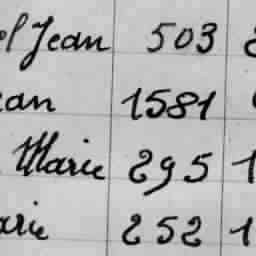 el Jean 503
ean 1581
Marie 295 1
arie 252 1